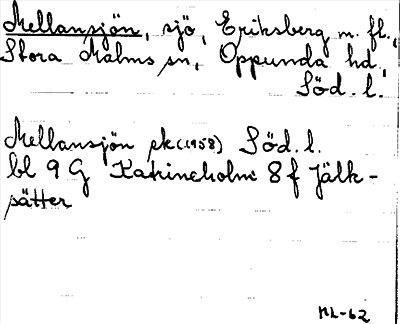 Mellansjön, sjö, Eriksberg m. fl.,
Stora Malms sn, Oppunda hd,
Söd. l.
Mellansjön ek (1958) Söd. l.
bl 9 G Katrineholm 8 f Jälk-
sätter
NL-62